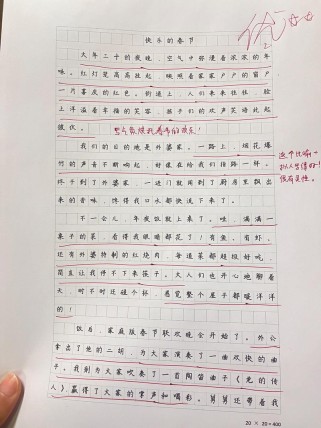 优
快乐的春节
大年三十的夜晚，空气中弥漫着浓浓的年
味。红灯笼高高挂起，映照着家家户户的窗户
一片喜庆的红色。街道上，人们来来往往，脸
上洋溢着幸福的笑容，孩子们的欢声笑语此起
彼伏。
我们的目的地是外婆家。一路上，烟花爆
竹的声音不断响起，好像在给我们指路一样。
终于到了外婆家，一进门就闻到了厨房里飘出
来的香味，馋得我口水都快流下来了。
不一会儿，年夜饭就上来了。哇，满满一
桌子的菜，看得我眼睛都花了！有鱼、有虾、
还有外婆特制的红烧肉，每道菜都超级好吃，
简直让我停不下来筷子。大人们也开心地聊着
天，时不时还碰个杯，感觉整个屋子都暖洋洋
的！
饭后，家庭版春节联欢晚会开始了。外公
拿出了他的二胡，为大家演奏了一曲欢快的曲
子。我则为大家吹奏了一首陶笛曲子《龙的传
人》，赢得了大家的掌声和喝彩。舅舅还带着我
20 × 20 = 400